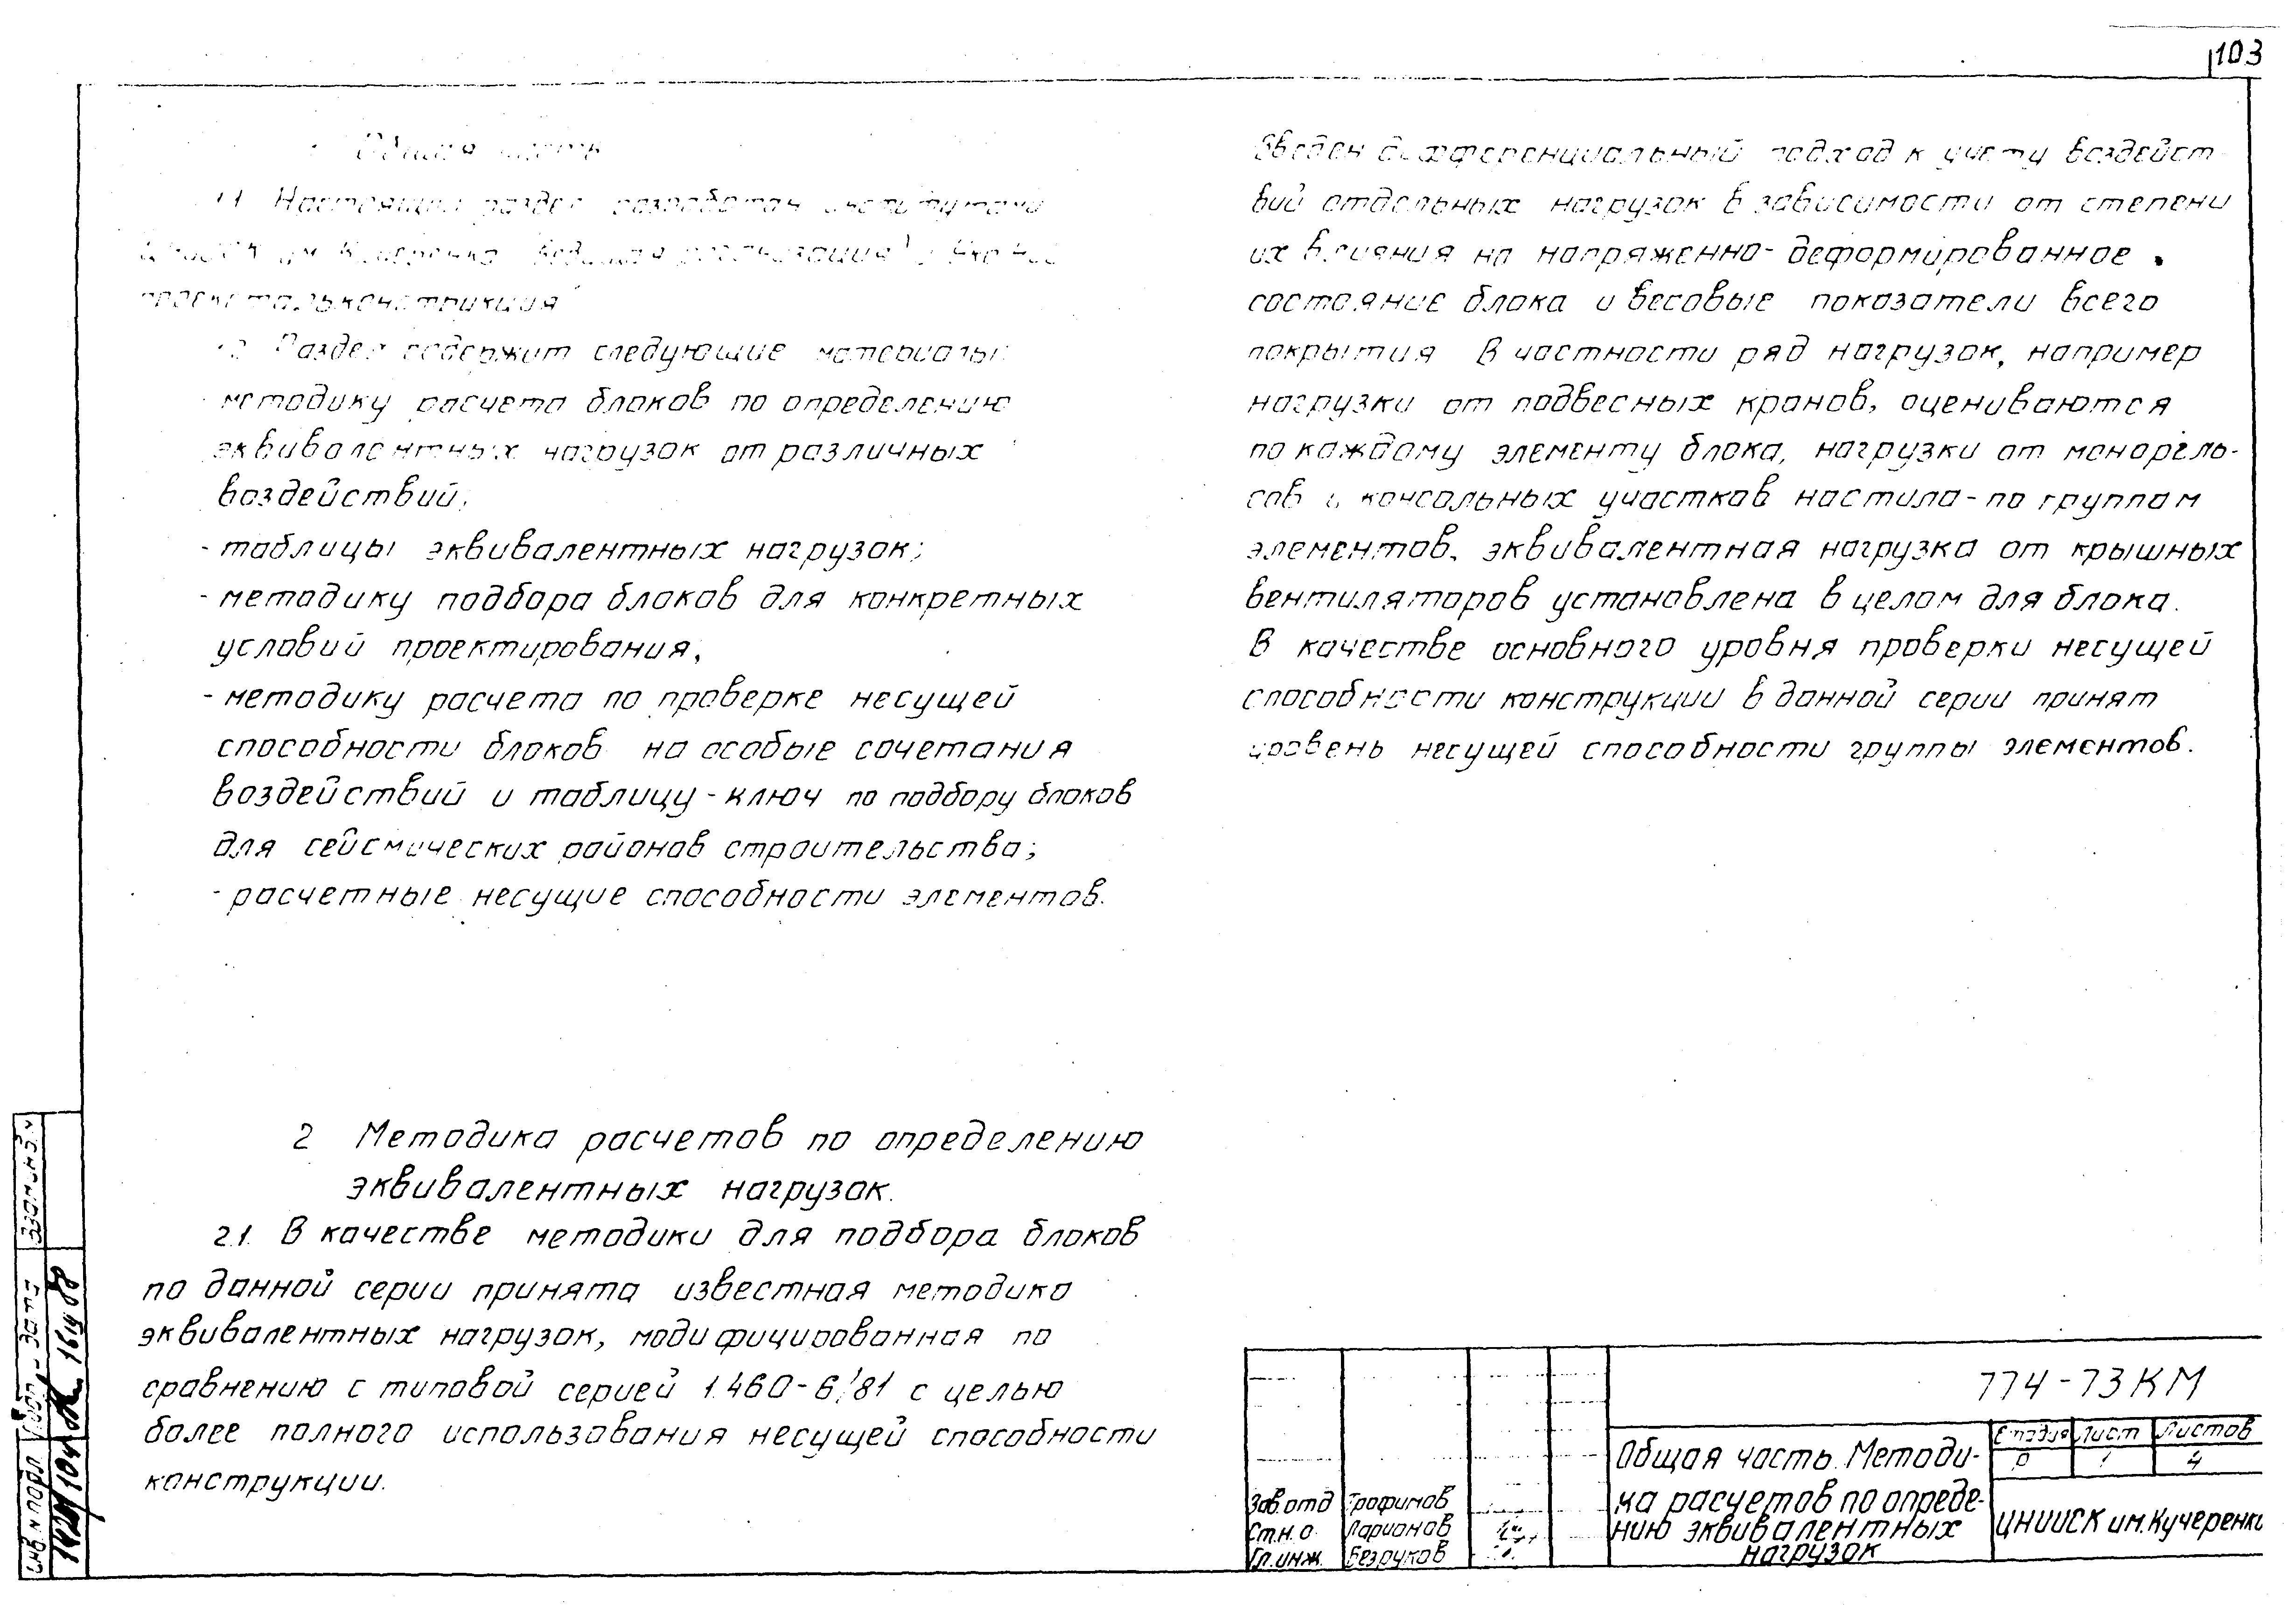 103
Общая часть
1.1 Настоящий раздел разработан институтами
ЦНИИСК им Кучеренко
1.2 Раздел содержит следующие материалы:
- методику расчета блоков по определению
эквивалентных нагрузок от различных
воздействий;
- таблицы эквивалентных нагрузок;
- методику подбора блоков для конкретных
условий проектирования;
- методику расчета по проверке несущей
способности блоков на особые сочетания
воздействий и таблицу-ключ по подбору блоков
для сейсмических районов строительства;
- расчетные несущие способности элементов.
2 Методика расчетов по определению
эквивалентных нагрузок.
2.1. В качестве методики для подбора блоков
по данной серии принята известная методика
эквивалентных нагрузок, модифицированная по
сравнению с типовой серией 1.460-6/81 с целью
более полного использования несущей способности
конструкции.
Введен дифференциальный подход к учету воздейст-
вий отдельных нагрузок в зависимости от степени
их влияния на напряженно-деформированное
состояние блока и весовые показатели всего
покрытия В частности ряд нагрузок, например
нагрузки от подвесных кранов, оцениваются
по каждому элементу блока, нагрузки от монорель-
сов и консольных участков настила - по группам
элементов, эквивалентная нагрузка от крышных
вентиляторов установлена в целом для блока.
В качестве основного уровня проверки несущей
способности конструкции в данной серии принят
уровень несущей способности группы элементов.
774-73КМ
Общая часть. Методи-
ка расчетов по опреде-
нию эквивалентных
нагрузок
Стадия Лист Листов
Р 1 4
ЦНИИСК им. Кучеренко
Зав. отд Трофимов
Ст.н.о. Ларионов
Гл. инж. Безруков
Взам инв.н
Подп. дата
Инв.н подл